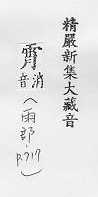 精嚴新集大藏音
霄消音（雨部·P.717）